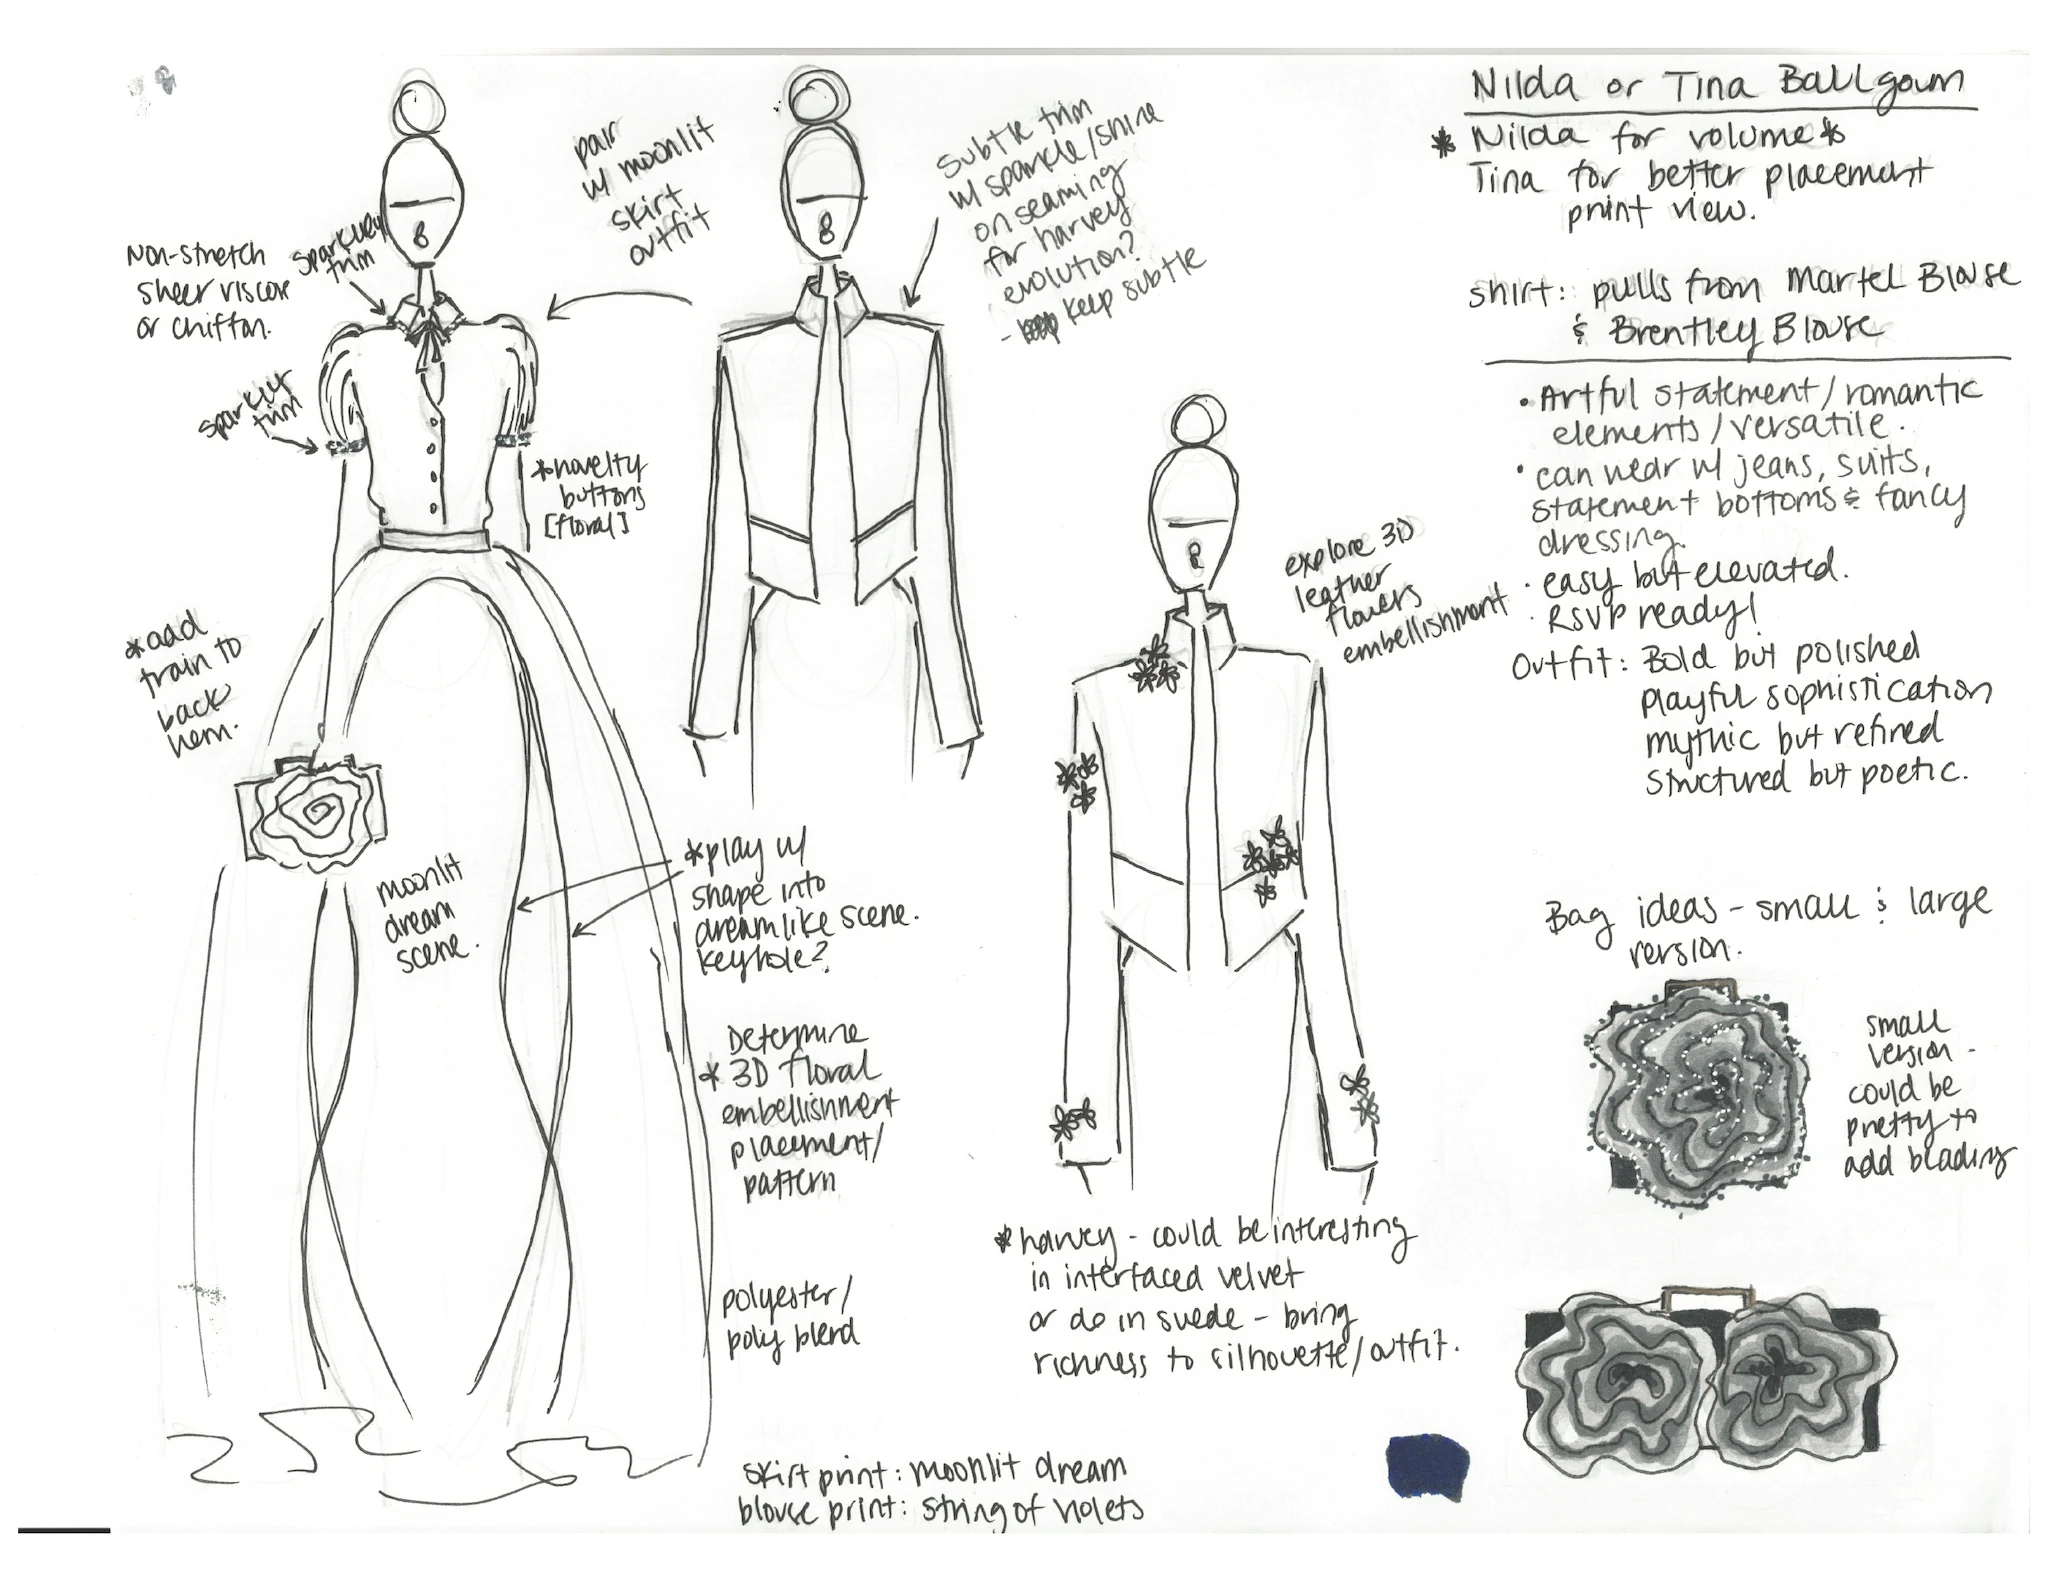 Non-stretch
sheer viscose
or chiffon.
Sparkley
trim
sparkley
trim
*novelty
buttons
[floral]
*add
train to
back
hem.
moonlit
dream
scene.
pair
w/ moonlit
skirt
outfit
subtle trim
w/ sparkle/shine
on seaming
for harvey
evolution?
- keep subtle
*play w/
shape into
dreamlike scene.
keyhole?
Determine
* 3D floral
embellishment
placement/
pattern
polyester/
poly blend
skirt print: moonlit dream
blouse print: string of violets
explore 3D
leather
flowers
embellishment
*harvey - could be interesting
in interfaced velvet
or do in suede - bring
richness to silhouette/outfit.
Nilda or Tina Ballgown
* Nilda for volume *
Tina for better placement
print view.
shirt: pulls from Martel Blouse
& Brentley Blouse
• Artful statement/romantic
elements/versatile.
• can wear w/ jeans, suits,
statement bottoms & fancy
dressing.
• easy but elevated.
• RSVP ready!
Outfit: Bold but polished
playful sophistication
mythic but refined
structured but poetic.
Bag ideas - small & large
version.
small
version -
could be
pretty to
add beading